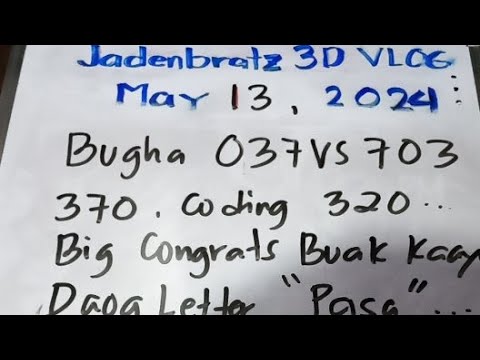 Jadenbratz 3D VLOG
May 13, 2024
Bugha 037 VS 703
370. Coding 320...
Big Congrats Buak Kaay
Daoa Letter "Pasa"...